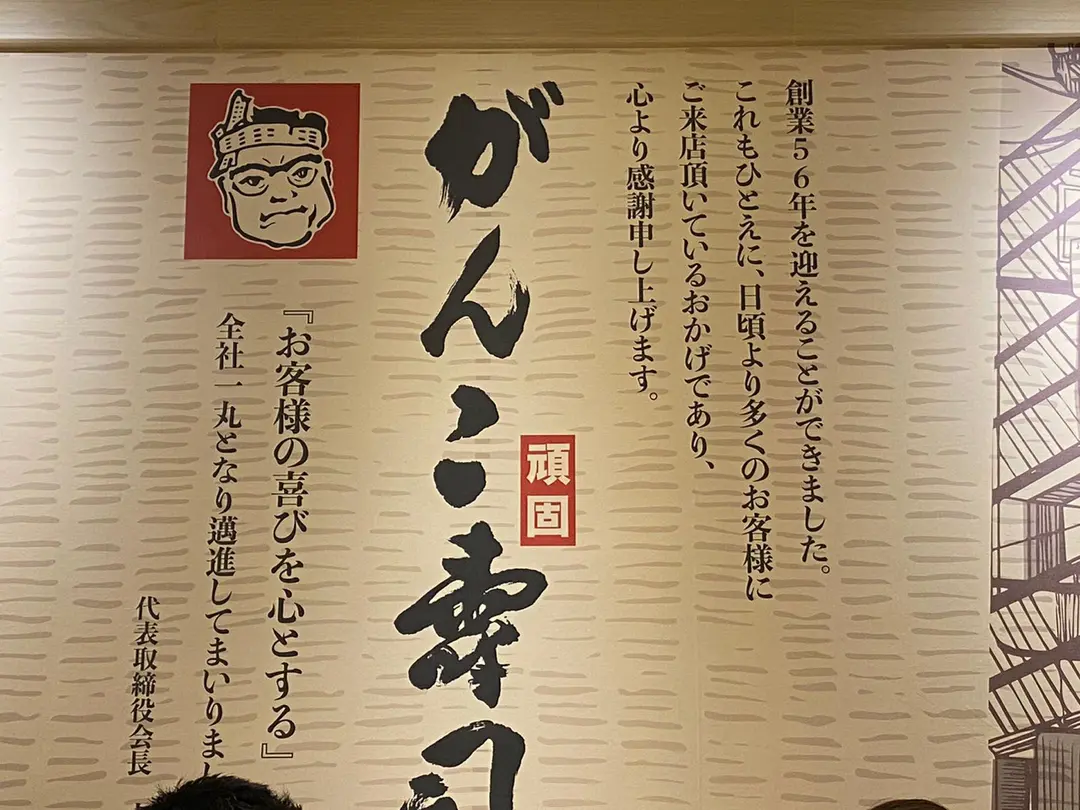 創業56年を迎えることができました。
これもひとえに、日頃より多くのお客様に
ご来店頂いているおかげであり、
心より感謝申し上げます。
頑固
がんこ寿司
『お客様の喜びを心とする』
全社一丸となり邁進してまいりま
代表取締役会長